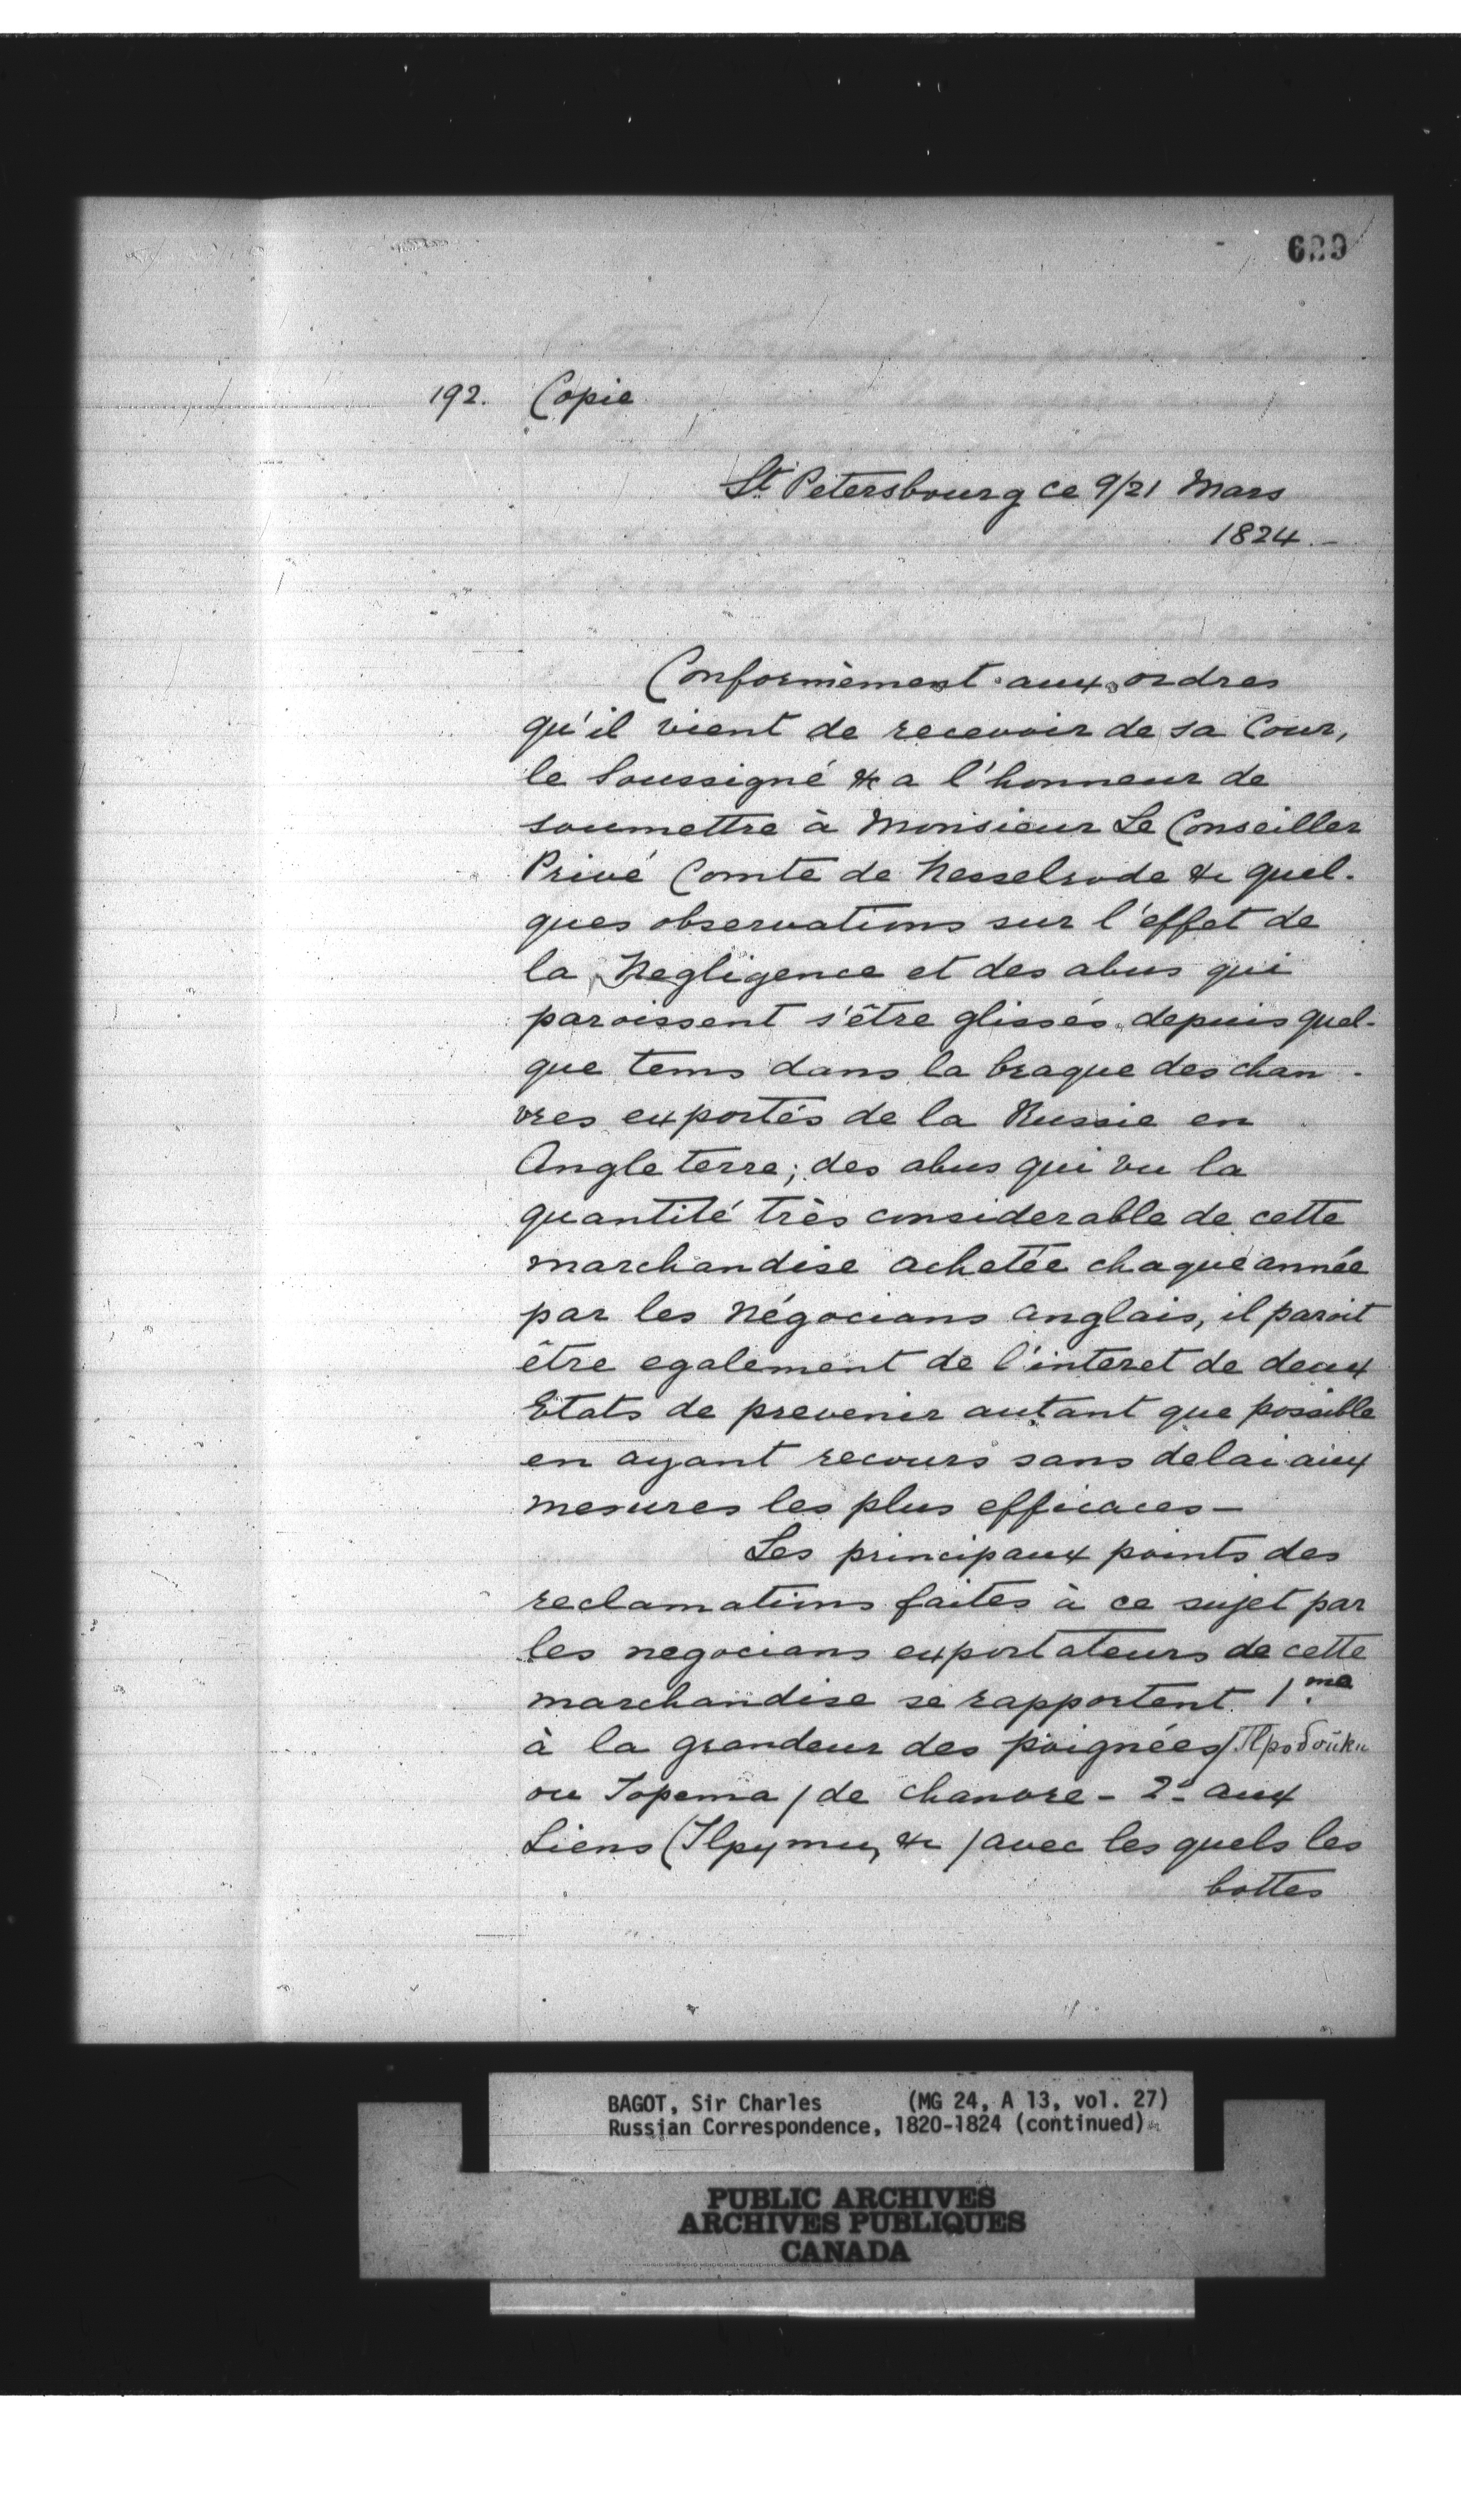 192. Copie
St Petersbourg ce 9/21 Mars
1824.-
Conformèment aux ordres
qu'il vient de recevoir de sa Cour,
le Soussigné &c a l'honneur de
soumettre à Monsieur Le Conseiller
Privé Comte de Nesselrode &c quel-
ques observations sur l'effet de
la Negligence et des abus qui
paroissent s'être glissés depuis quel-
que tems dans la braque des chan-
vres exportés de la Russie en
Angleterre; des abus qui vu la
quantité très considerable de cette
marchandise achetée chaque année
par les Négocians anglais, il paroit
être egalement de l'interet de deux
Etats de prevenir autant que possible
en ayant recours sans delai aux
mesures les plus efficaces—
Les principaux points des
reclamations faites à ce sujet par
les negocians exportateurs de cette
marchandise se rapportent 1.me
à la grandeur des poignées/Пробойки
ou / de chanvre - 2º aux
Liens ( &c / avec les quels les
bottes
BAGOT, Sir Charles (MG 24, A 13, vol. 27)
Russian Correspondence, 1820-1824 (continued)
PUBLIC ARCHIVES
ARCHIVES PUBLIQUES
CANADA